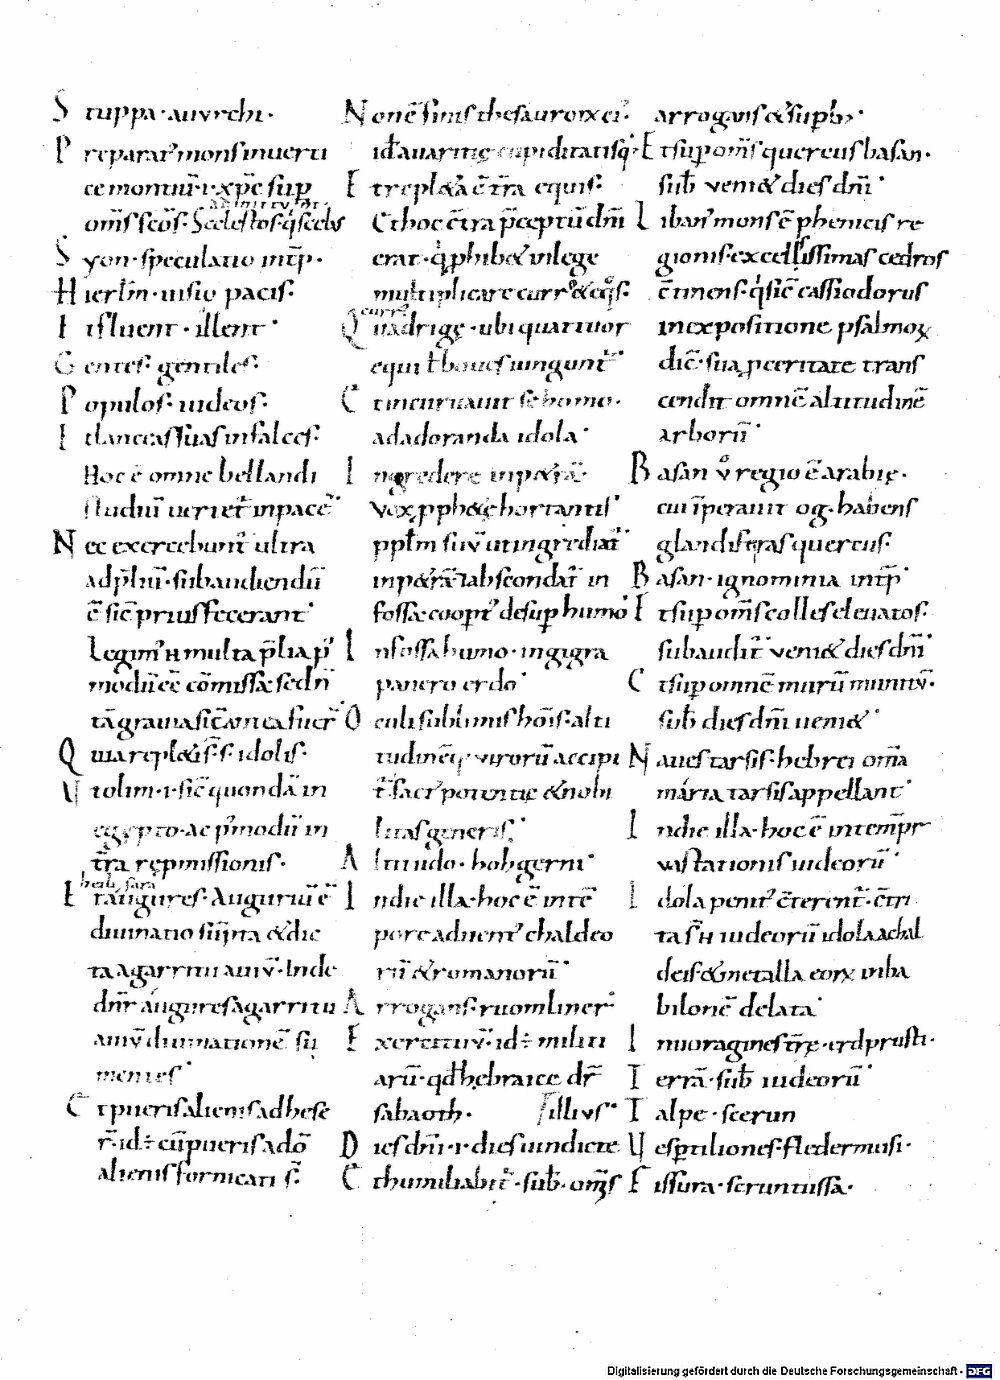 Stuppa · auurchi ·
Preparat᷒ mons inuerti
ce montiū · i · xp̄c sup̱
om̄s sc̄os · Scelestos · q̄ scelus
Syon · speculatio int̄p ·
Hierl̄m · uisio pacis ·
It fluent · illent ·
Gentes · gentiles ·
Populos · iudeos ·
Et lanceas suas in falces ·
Hoc ē omne bellandi
studiū uertet᷒ in pacē ·
Nec exercebunt᷒ ultra
ad p̄liū · subaudiendū
ē sic̄ prius fecerant ·
Legim᷒ multa p̄lia
modū ēē cōmissa sed n̄
tā grauia
Quia repl&i s̄ · idolis ·
Ut olim · i · sic̄ quondā in
egypto · ac
t̄ra repmissionis ·
Et augures · Auguriū ē
diuinatio & dic
ta a garritu auiū · Inde
dn̄r augures a garritu
auiū diuinationē su
mentes ·
Et pueris alienis adhese
r̄ · id÷ cū pueris adō
alienis fornicati s̄ ·
Non ē finis thesauroꝝ ei᷒ ·
id÷ auaritię cupiditatisq᷒ ·
Et repl&a ē t̄ra equis ·
Et hoc c̄tra p̄ceptū dn̄i
erat · q̄ phib& in lege
multiplicare curr᷒ & eq̊s ·
Quadrigę · ubi quattuor
equi ł boues iungunt᷒ ·
Et incuruauit se homo ·
ad adoranda idola ·
Ingredere in p&rā ·
Vox pph&ę hortantis
pp̄lm suū ut ingrediat᷒
in p&rā & abscondat᷒ in
fossa coopt᷒ desup̱ humo ·
In fossa humo · in gigra
panero erdo ·
Oculi sublimis hōis · alti
tudinēq᷒ uirorū accipi
t̄ sacr᷒ potentię & nobi
litas generis ·
Altitudo · hohgerni ·
In die illa · hoc ē in tē
pore aduent᷒ chaldeo
rū & romanorū ·
Arrogans · ruomliner ·
Exercituū · id÷ militi
arū · qd̄ hebraice dr̄
sabaoth · illius ·
Dies dn̄i · i · dies uindicte
Et humiliabit᷒ · sub̄ · om̄s
arrogans & sup̱b᷒ ·
Et sup̱ om̄s quercus basan ·
sub̄ ueni& dies dn̄i ·
Liban᷒ mons ē phenicis re
gionis · excellissimas cedros
c̄tinens · q̄ sic̄ cassiodorus
in expositione psalmoꝝ
dic̄ · sua pceritate trans
cendit omnē altitudinē
arborū ·
Basan ů regio ē arabię ·
cui īperauit og · habens
glandiferas quercus ·
Basan · ignominia int̄p ·
Et sup̱ om̄s colles eleuatos ·
subaudit᷒ ueni& dies dn̄i ·
Et sup̱ omnē murū munitū ·
sub̄ dies dn̄i ueni& ·
Naues tarsis · hebrei om̄a
maria tarsis appellant ·
In die illa · hoc ē in temp̱r
uastationis iudeorū ·
Idola penit᷒ c̄terent᷒ · c̄tri
ta s̄ iudeorū idola a chal
deis & metalla eoꝝ in ba
bilonē delata ·
In uoragines t̄rę · erdprusti ·
In t̄rrā · sub̄ iudeorū ·
Talpe · scerun
Uesp̱tiliones · fledermusi ·
Fissura · scruntussa ·